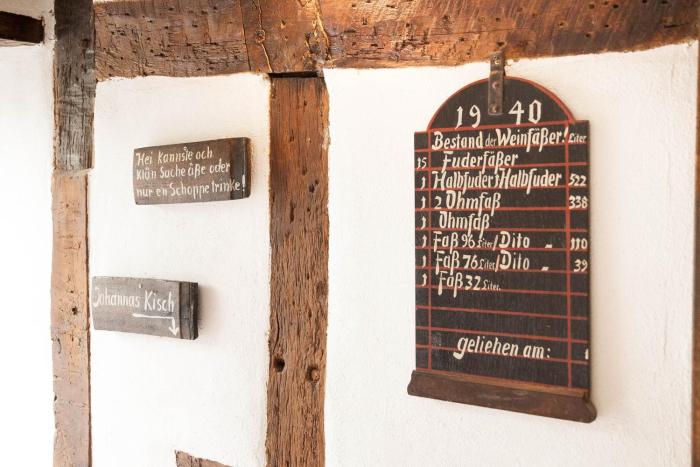 Hei kannsie och
klön Suche äße oder
nur en Schoppe trinke!
Johannas' Kisch
19 40
Bestand der Weinfäßer! Liter
15 Fuderfäßer
1 Halbfuder 1 Halbfuder 522
1 2 Ohmfaß 338
1 Ohmfaß
1 Faß 96 Liter 1 Dito „ 110
1 Faß 76 Liter 1 Dito „ 39
1 Faß 32 Liter.
geliehen am: